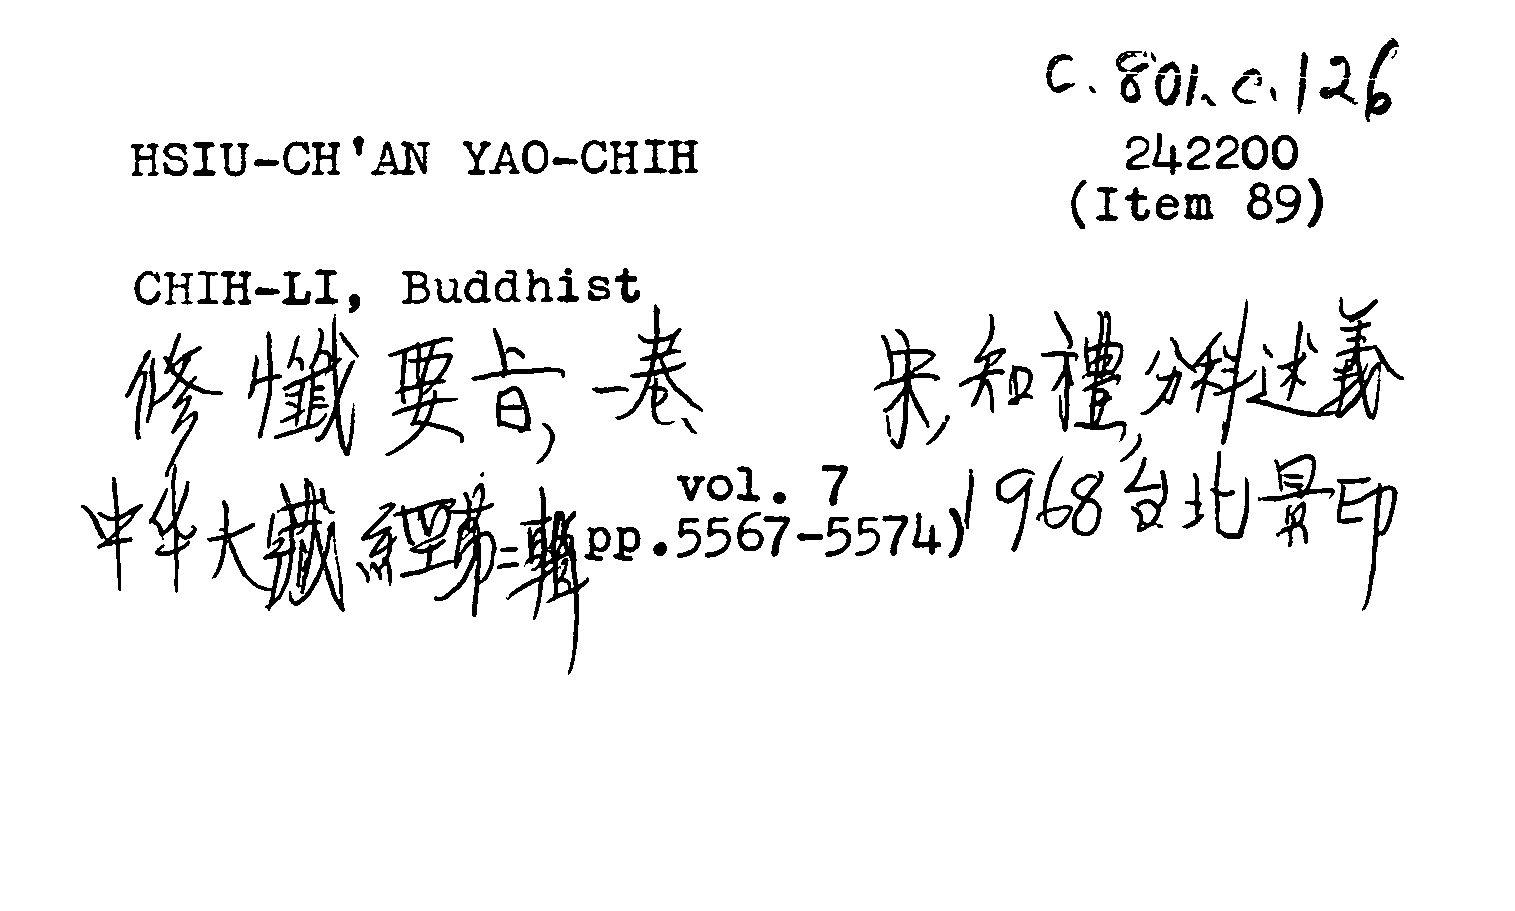 C.801.c.126
HSIU-CH'AN YAO-CHIH 242200
(Item 89)
CHIH-LI, Buddhist
修懺要旨,一卷、 宋,知禮,分科述義
中华大藏經第二輯 vol. 7 pp.5567-5574) 1968台北景印